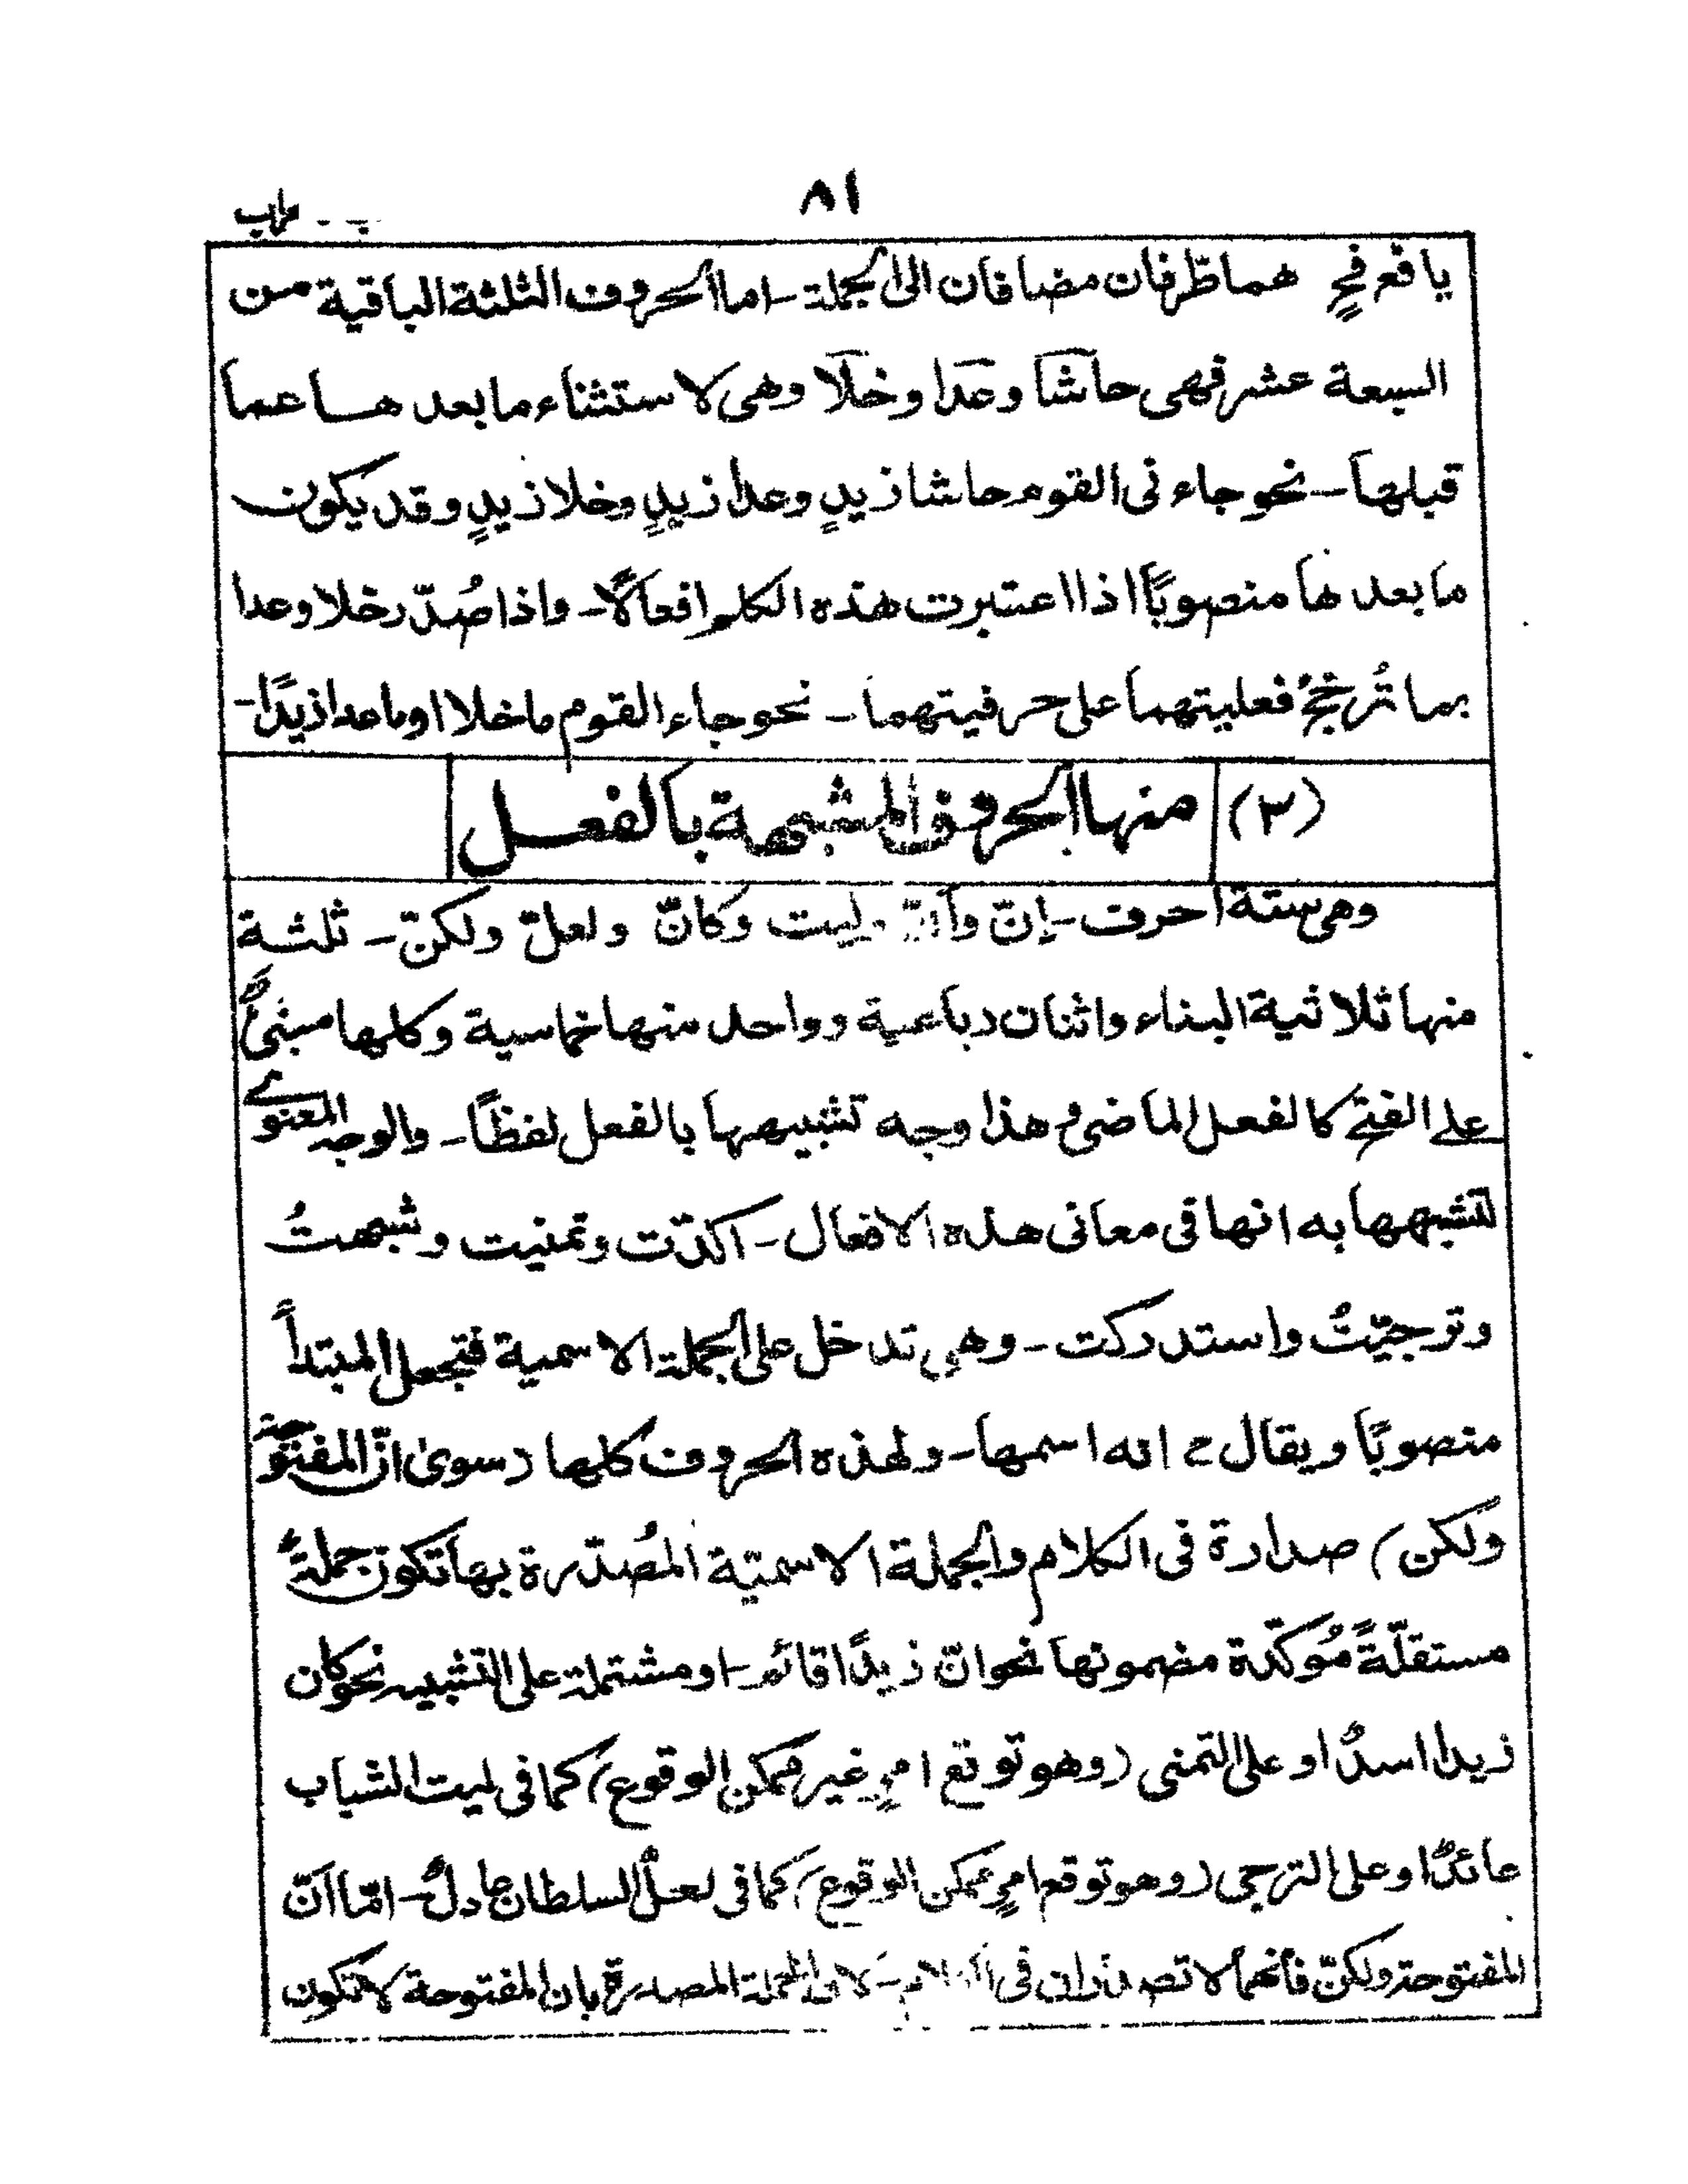 ٨١
يافع فح هما ظرفان مضافان الى الجملة - اما الحروف الثلثة الباقية من
السبعة عشر فهى حاشَا وعَدَا وخَلَا وهى لاستثناء ما بعد هـــا عما
قبلها - نحو جاء نى القوم حاشا زيدٍ وعدا زيدٍ وخلا زيدٍ وقد يكون
ما بعد ها منصوبًا اذا اعتبرت هذه الكلم افعالًا - واذا صُدّر خلا وعدا
بما تُرجّحُ فعليتهما على حرفيتهما - نحو جاء القوم ما خلا او ما عدا زيدًا -
(٣) منها الحروف المشبهة بالفعـــل
وهى ستة احرف - إنّ وأنّ وليت وكانّ ولعلّ ولكنّ - ثلثـة
منها ثلاثية البناء واثنان رباعية وواحد منها خماسية وكلها مبنىةٌ
على الفتح كالفعل الماضى وهذا وجه تشبيهها بالفعل لفظًا - والوجه المعنوے
لتشبهها به انها فى معانى هذه الافعال - اكدّت وتمنيت وشبهتُ
وترجيّتُ واستدركت - وهى تدخل على الجملة الاسمية فتجعل المبتدأ
منصوبًا ويقال ح انه اسمها - ولهذه الحروف كلها (سوىٰ انّ المفتوحة
ولكن) صدارة فى الكلام والجملة الاسميّة المُصدّرة بها تكون جملةً
مستقلّةً مُوكّدة مضمونها نحو انّ زيدًا قائم - او مشتملة على التشبيه نحو كان
زيدا اسدٌ او على التمنى (وهو توقع امرٍ غير ممكن الوقوع) كما فى ليت الشباب
عائدٌ او على الترجى (وهو توقع امرٍ ممكن الوقوع) كما فى لعلّ السلطان عادلٌ - امّا اَنّ
المفتوحة ولكنّ فانهما لا تصدران فى الكلام - لان الجملة المصدرة بان المفتوحة لا تكون